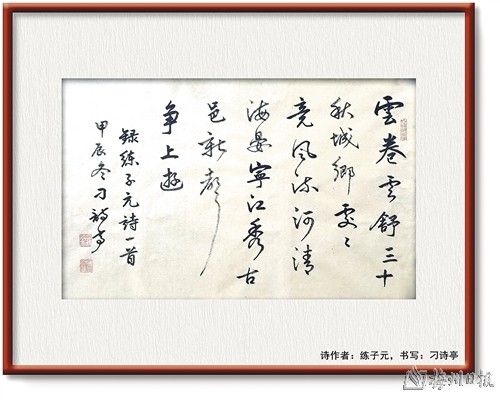 雲卷雲舒三十
秋城鄉處々
竞風流河清
海晏寧江秀古
邑新聲
争上遊
録练子元詩一首
甲辰冬刁詩亭
诗作者：练子元，书写：刁诗亭
梅州日报